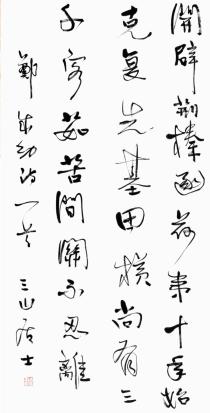 開闢荊榛逐荷夷十年始
克复先基田横尚有三
千客茹苦間關不忍離
鄭成功詩一首 三山居士